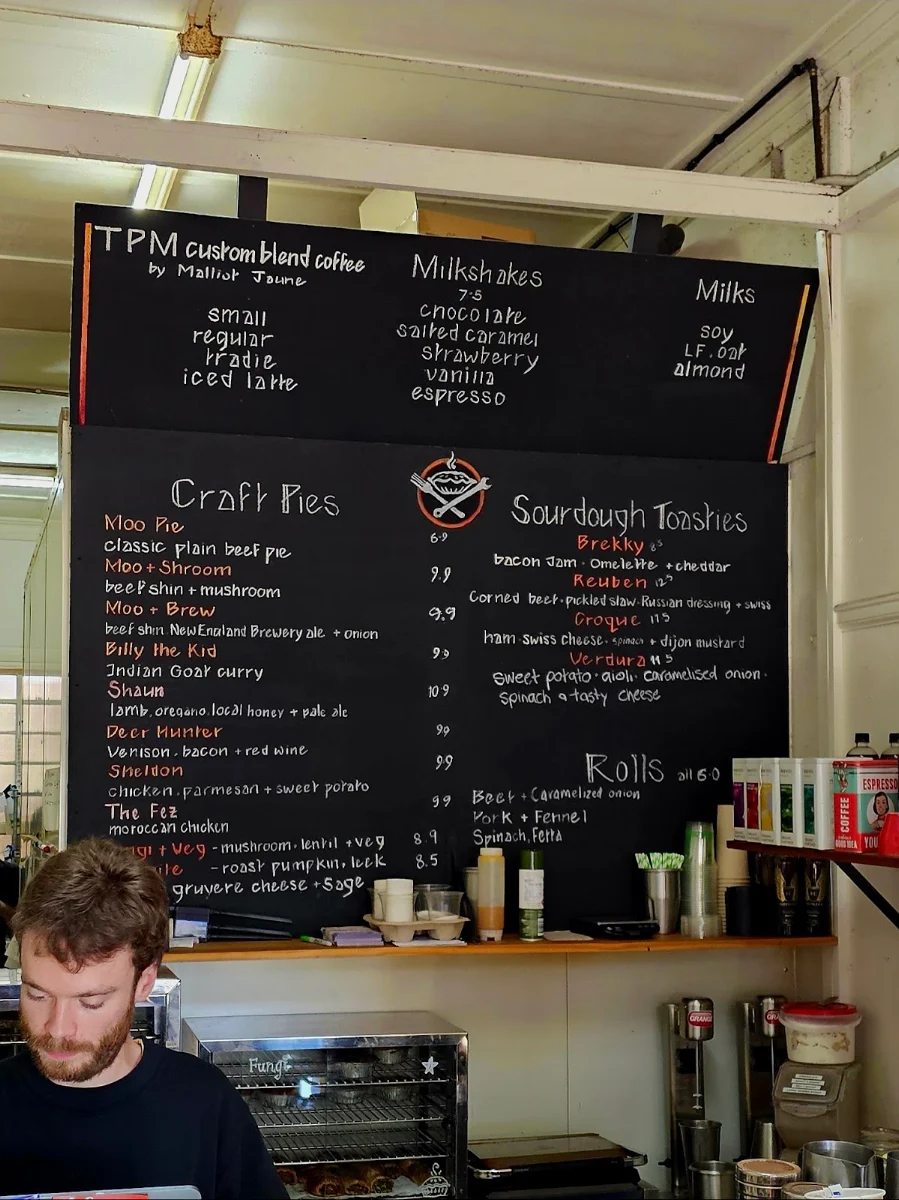 TPM custom blend coffee
by Malliot Jaune
small
regular
tradie
iced latte
Milkshakes
7.5
chocolate
salted caramel
strawberry
vanilla
espresso
Milks
soy
LF. oat
almond
Craft Pies
Moo Pie 6.9
classic plain beef pie
Moo + Shroom 9.9
beef shin + mushroom
Moo + Brew 9.9
beef shin New England Brewery ale + onion
Billy the Kid 9.9
Indian Goat curry
Shaun 10.9
lamb, oregano, local honey + pale ale
Deer Hunter 9.9
Venison, bacon + red wine
Sheldon 9.9
chicken, parmesan + sweet potato
The Fez 9.9
moroccan chicken
+ Veg - mushroom, lentil + veg 8.9
- roast pumpkin, leek 8.5
gruyere cheese + sage
Sourdough Toasties
Brekky 8.5
bacon Jam · Omelette + cheddar
Reuben 12.5
Corned beef · pickled slaw · Russian dressing + swiss
Croque 11.5
ham · swiss cheese · spinach + dijon mustard
Verdura 11.5
Sweet potato · aioli · caramelised onion ·
spinach & tasty cheese
Rolls all 6.0
Beef + Caramelized onion
Pork + Fennel
Spinach, Fetta
ESPRESSO
COFFEE
Fungi
GRANGE